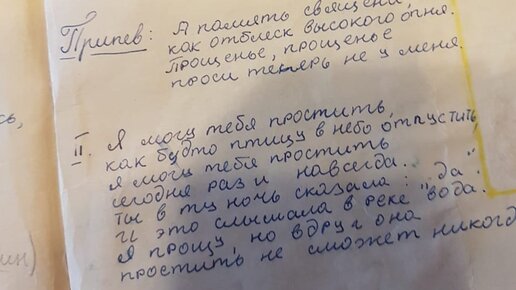 Припев: А память священн
как отблеск высокого огня.
Прощенье, прощенье
проси теперь не у меня.
II. Я могу тебя простить,
как будто птицу в небо отпустить,
я могу тебя простить
сегодня раз и навсегда.
Ты в ту ночь сказала: "да".
И это слышала в реке вода.
Я прощу, но вдруг она
простить не сможет никогд
сь,
ин)